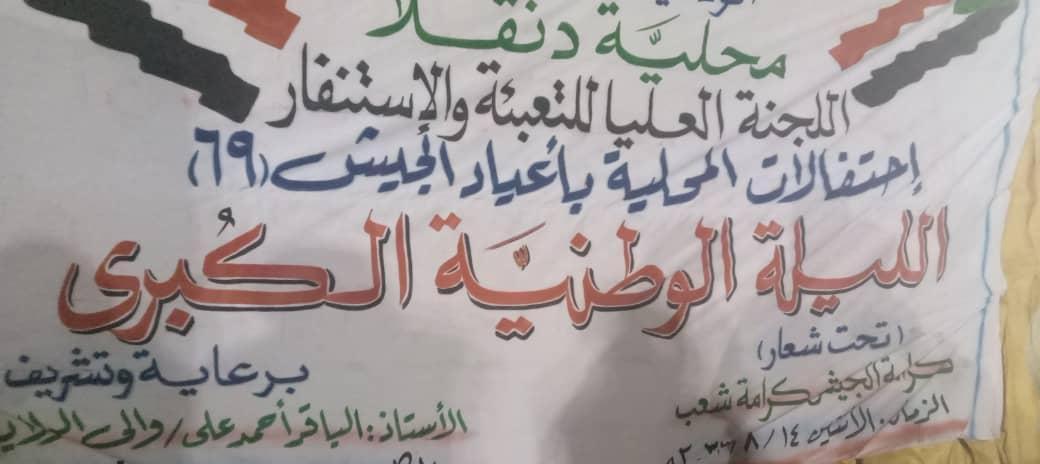 محلية دنقلا
اللجنة العليا للتعبئة والإستنفار
إحتفالات المحلية بأعياد الجيش (٦٩)
الليلة الوطنيَّة الكُبرى
(تحت شعار)
كرامة الجيش كرامة شعب
الزمان: الأثنين ٨/١٤
برعاية وتشريف
الأستاذ: الباقر أحمد على / والى الولاي